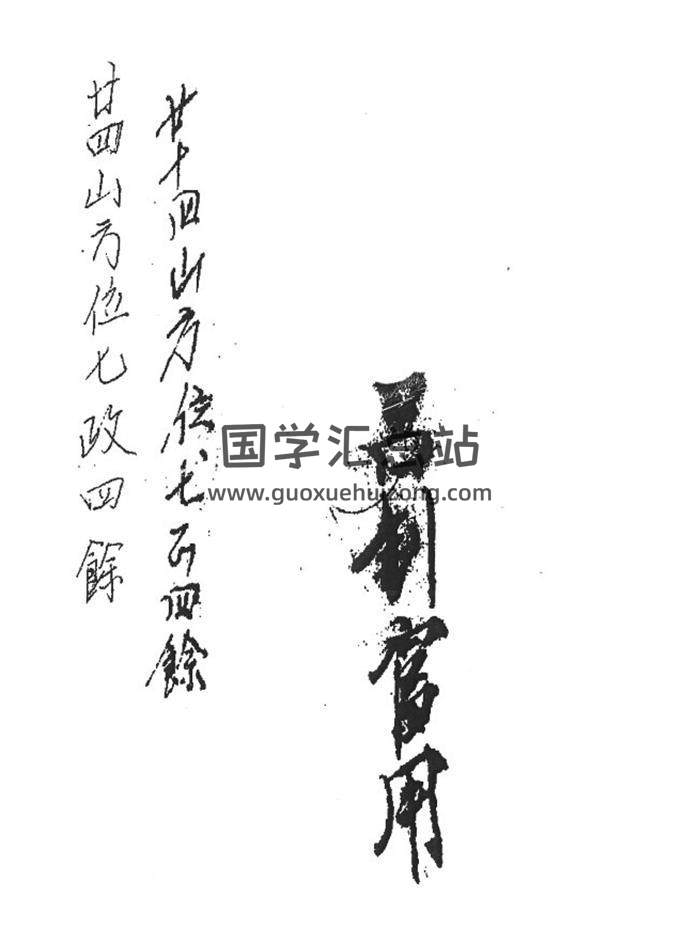 制官用
廿十四山方位七正四餘
廿四山方位七政四餘
国学汇总站
www.guoxuehuizong.com